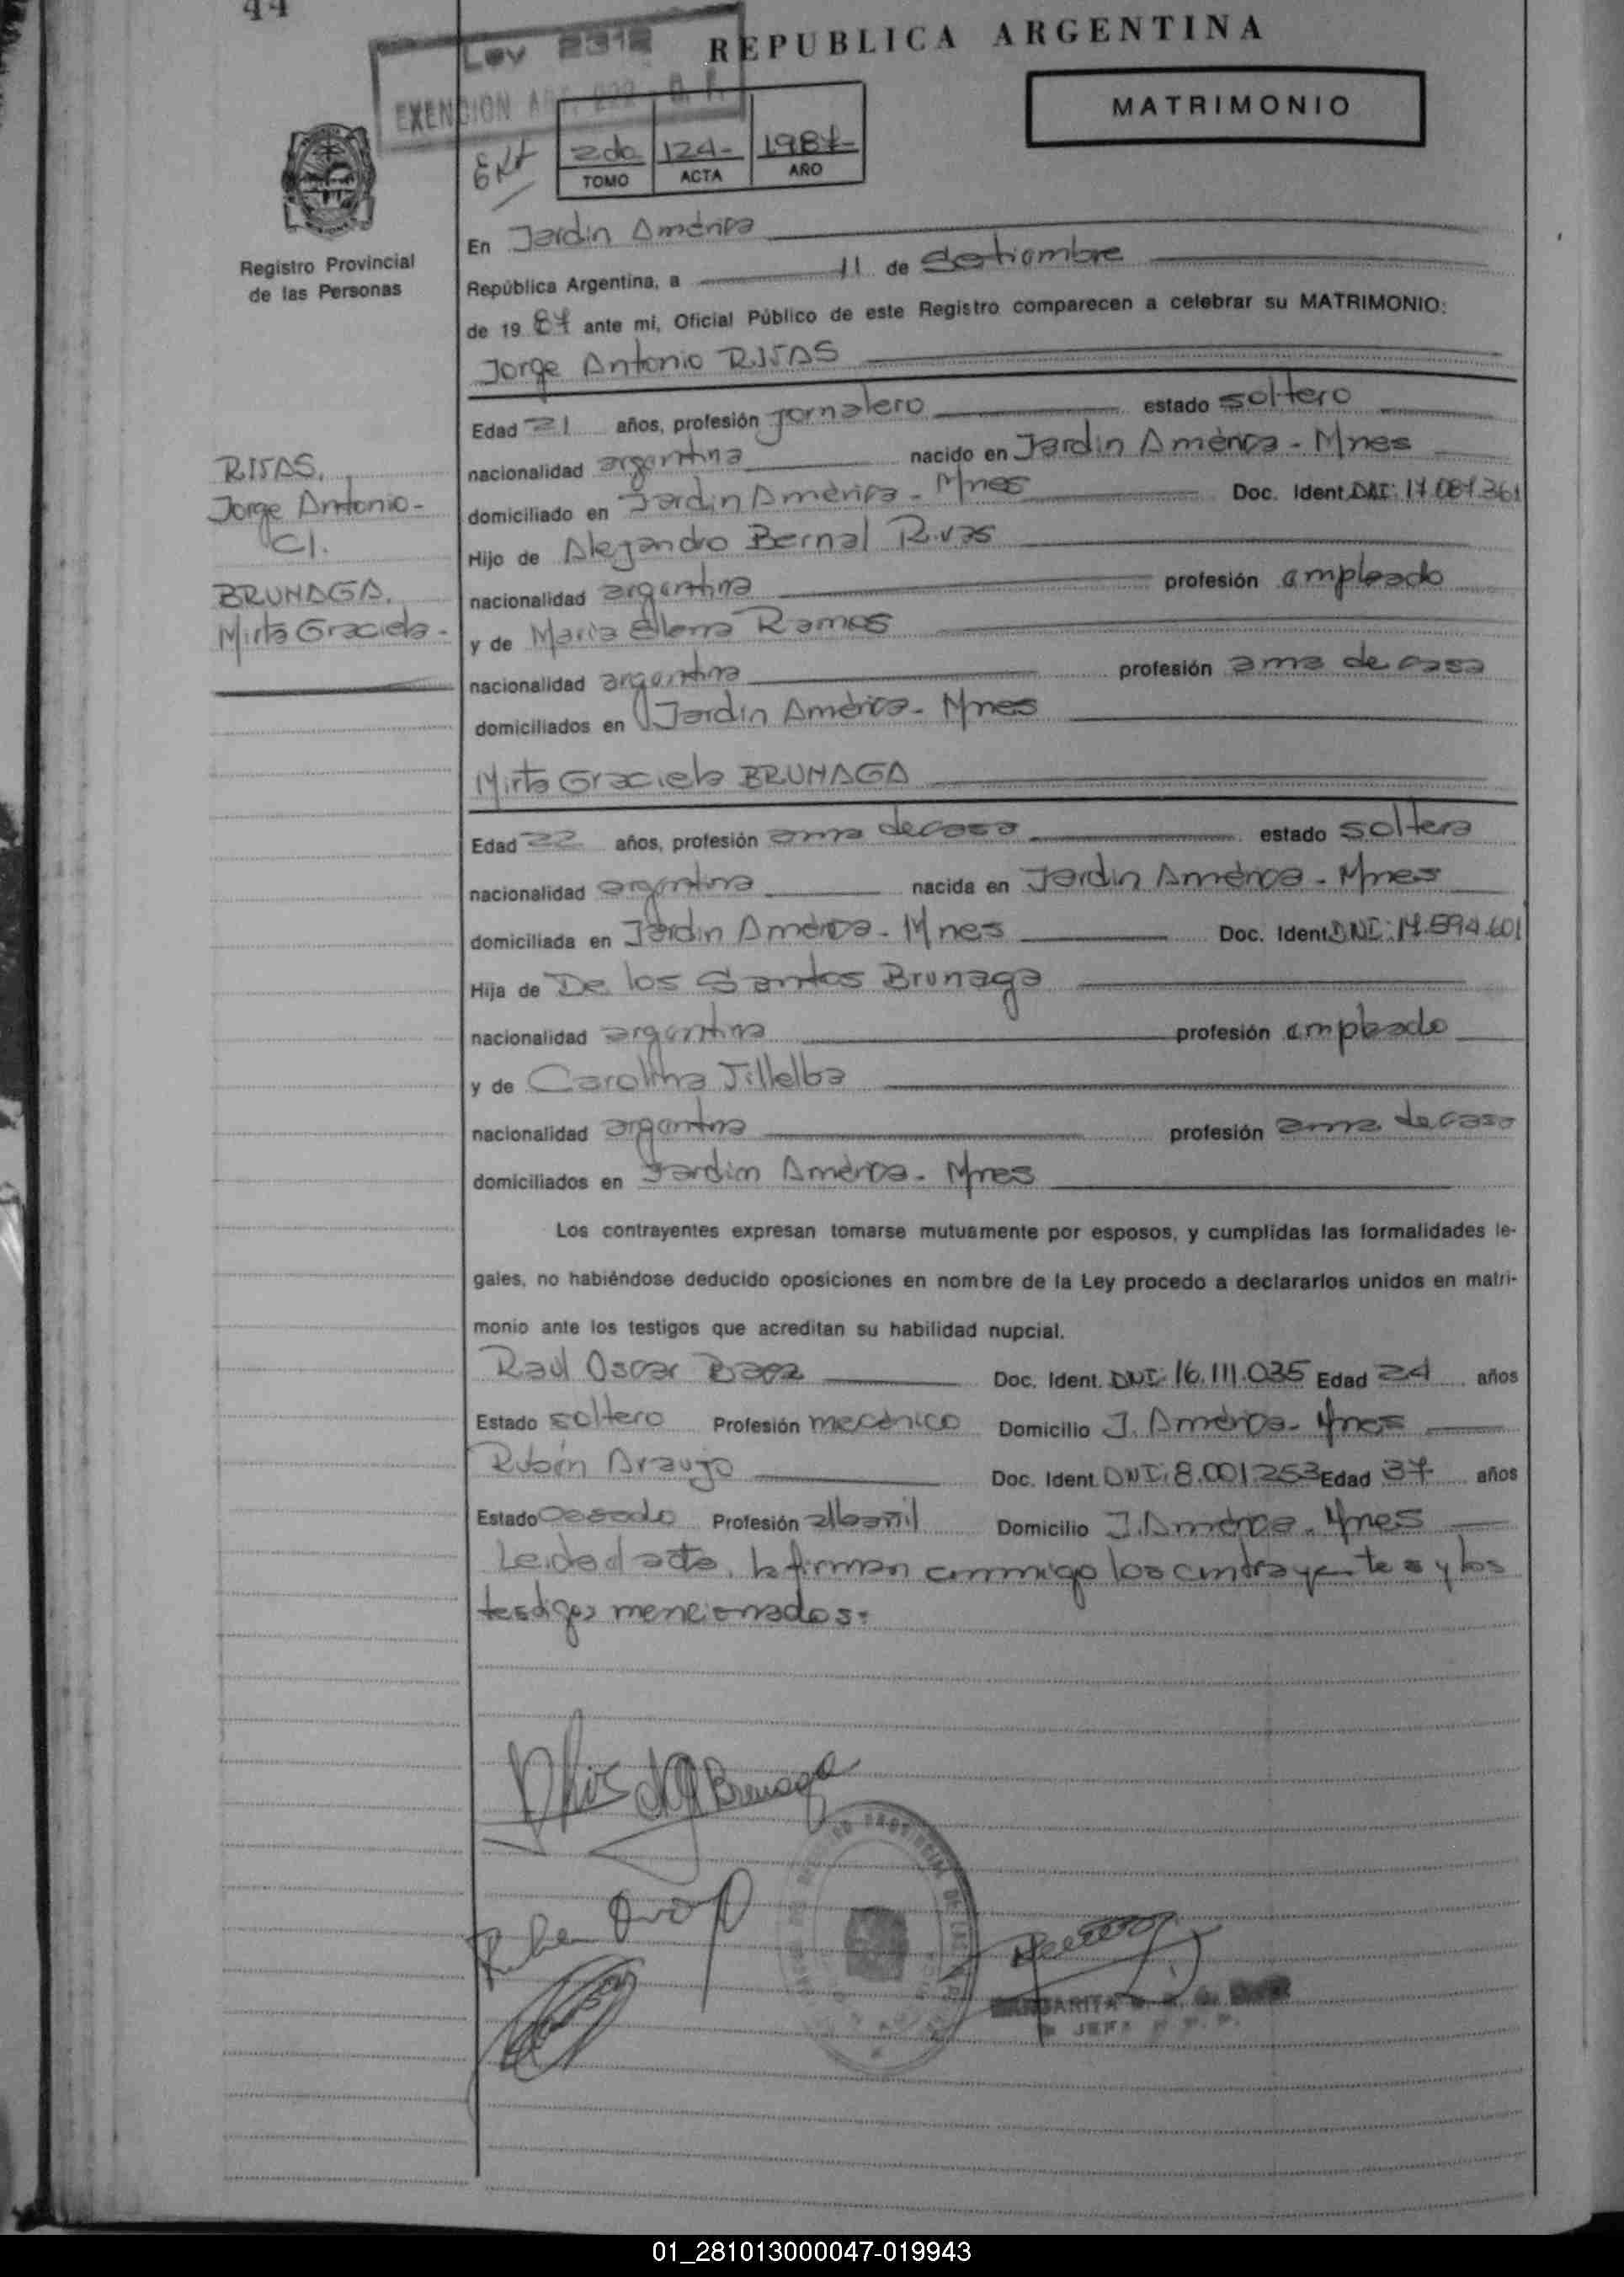 44
Ley 2312
REPUBLICA ARGENTINA
EXENCION
MATRIMONIO
2do 124- 1987-
TOMO ACTA AÑO
Registro Provincial
de las Personas
En Jardin América
República Argentina, a 11 de Setiembre
de 19 87 ante mi, Oficial Público de este Registro comparecen a celebrar su MATRIMONIO:
Jorge Antonio RIVAS
Edad 21 años, profesión jornalero estado soltero
RIVAS,
nacionalidad argentina nacido en Jardin América - Mnes
Jorge Antonio-
domiciliado en Jardin América - Mnes Doc. Ident. DNI: 17.087.361
C/.
Hijo de Alejandro Bernal Rivas
BRUNAGA,
nacionalidad argentina profesión empleado
Mirta Graciela-
y de Maria Elena Ramos
nacionalidad argentina profesión ama de casa
domiciliados en Jardin América - Mnes
Mirta Graciela BRUNAGA
Edad 22 años, profesión ama de casa estado soltera
nacionalidad argentina nacida en Jardin América - Mnes
domiciliada en Jardin América - Mnes Doc. Ident. DNI: 17.594.601
Hija de De los Santos Brunaga
nacionalidad argentina profesión empleado
y de Carolina Villelba
nacionalidad argentina profesión ama de casa
domiciliados en Jardin América - Mnes
Los contrayentes expresan tomarse mutuamente por esposos, y cumplidas las formalidades le-
gales, no habiéndose deducido oposiciones en nombre de la Ley procedo a declararlos unidos en matri-
monio ante los testigos que acreditan su habilidad nupcial.
Raúl Oscar Baez Doc. Ident. DNI: 16.111.035 Edad 24 años
Estado soltero Profesión mecánico Domicilio J. América - Mnes
Rubén Araujo Doc. Ident. DNI: 8.001.253 Edad 37 años
Estado casado Profesión albañil Domicilio J. América - Mnes
Leida el acta, la firman conmigo los contrayentes y los
testigos mencionados.
Brunaga
Ruben
MARGARITA
JEFA
01_281013000047-019943